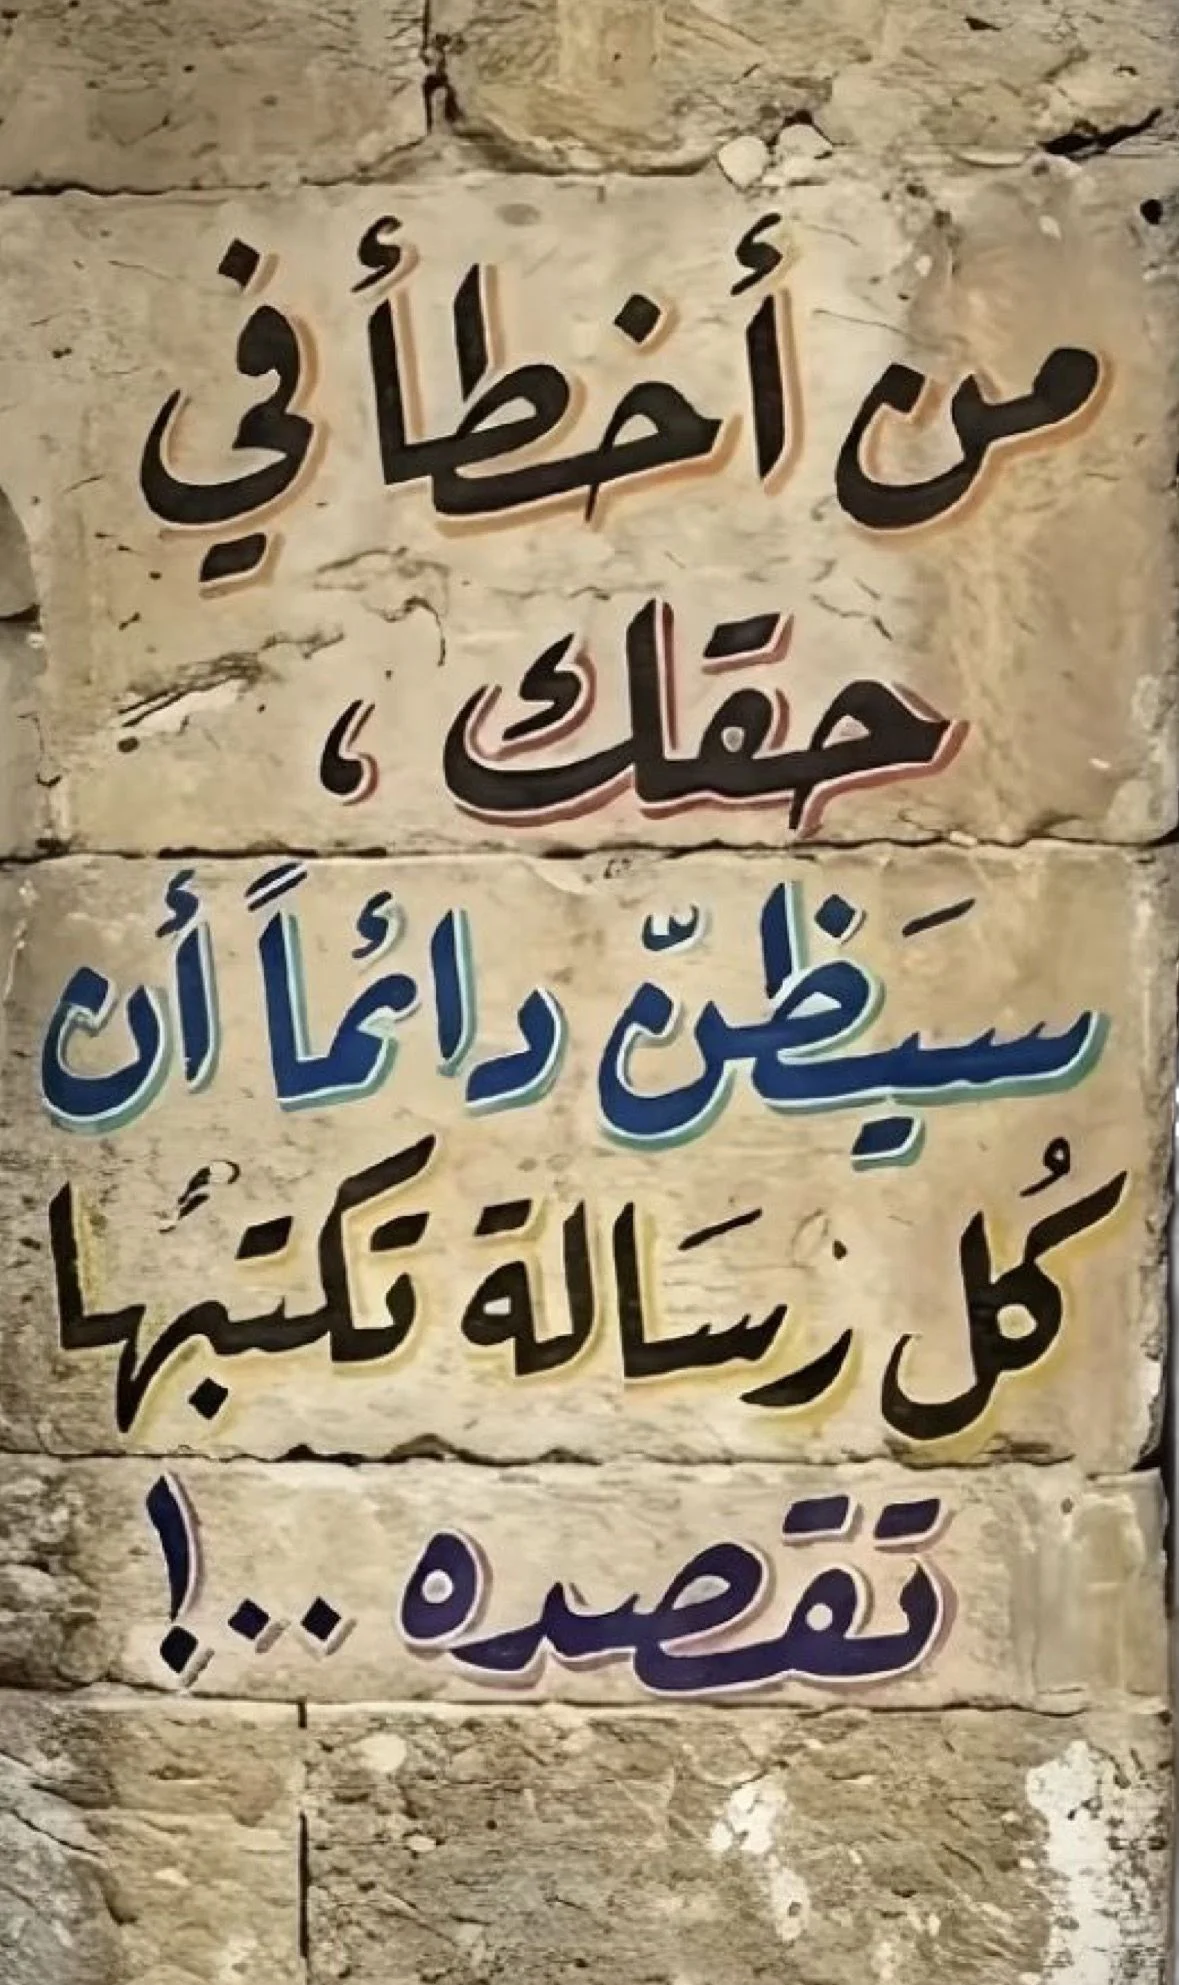 من أخطأ في
حقك ،
سيَظنّ دائماً أن
كُل رسَالة تكتبُها
تقصده ..!